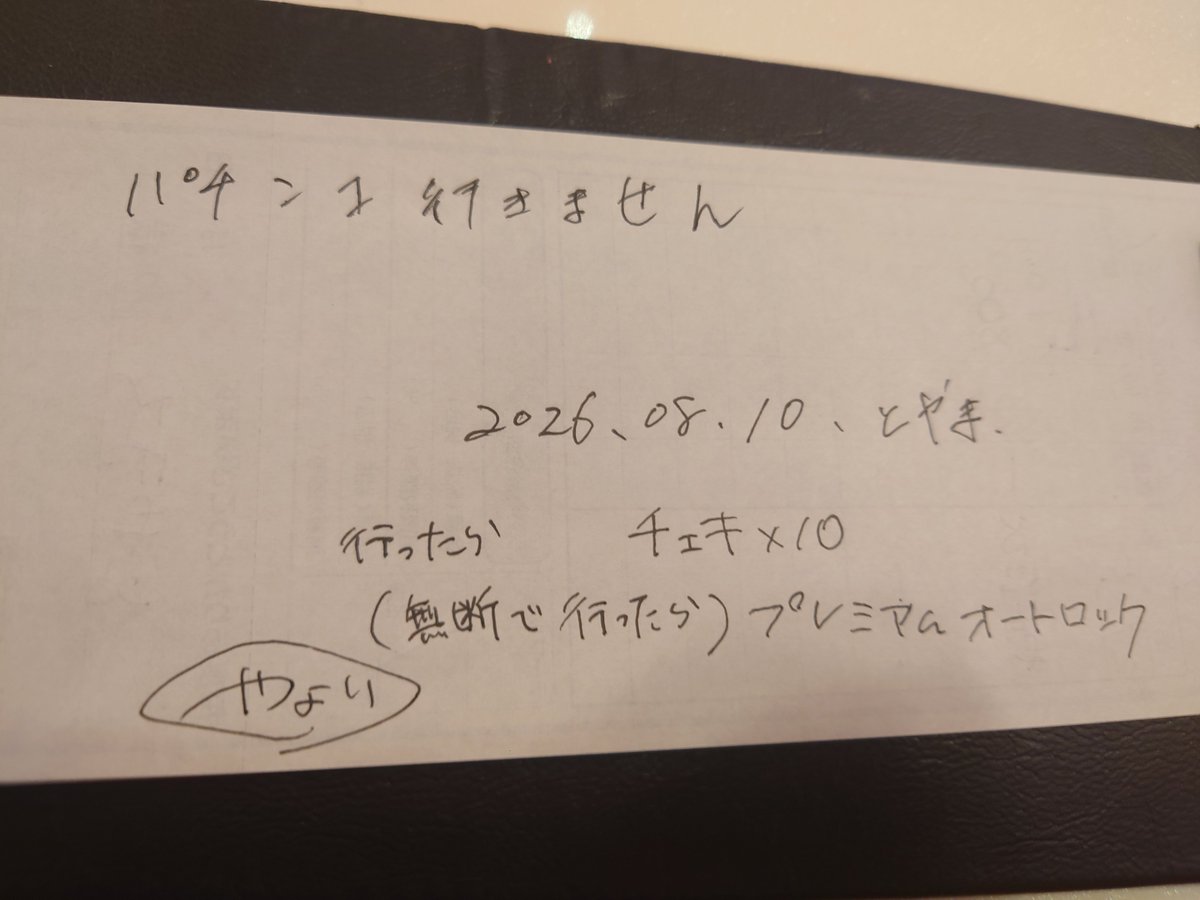 パチンコ行きません
2026、08、10、とやま.
行ったら チェキ×10
(無断で行ったら) プレミアムオートロック
やよい